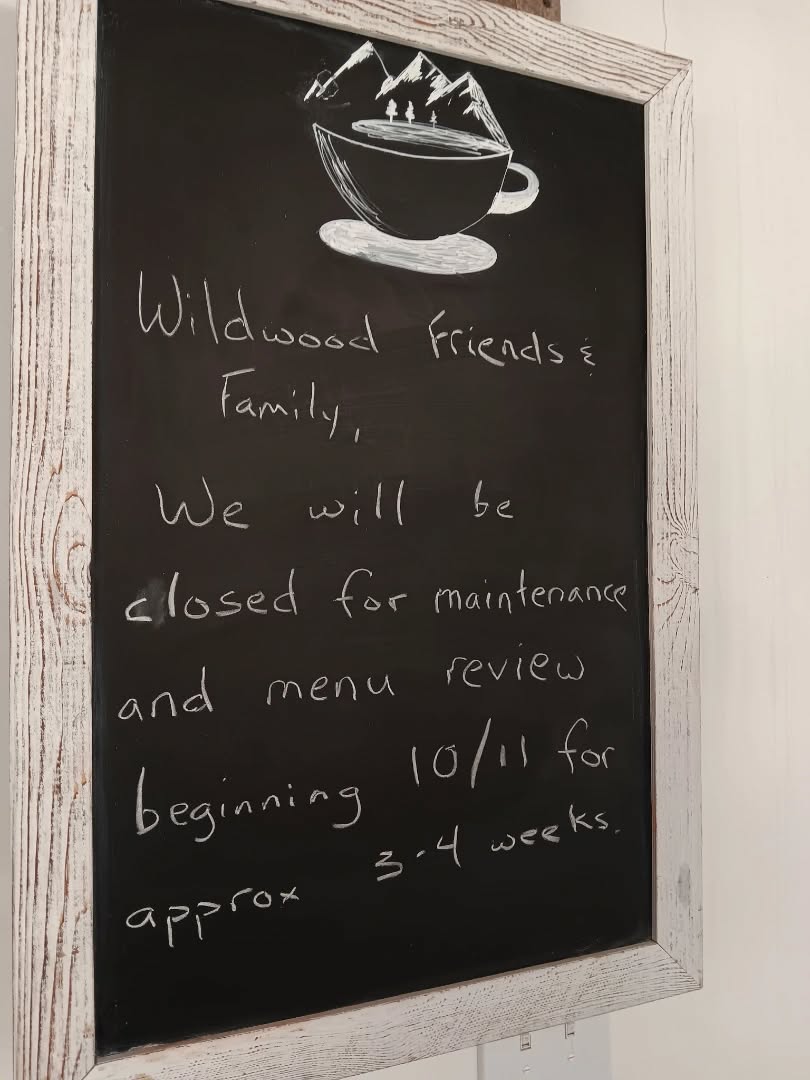 Wildwood Friends &
Family,
We will be
closed for maintenance
and menu review
beginning 10/11 for
approx 3-4 weeks.